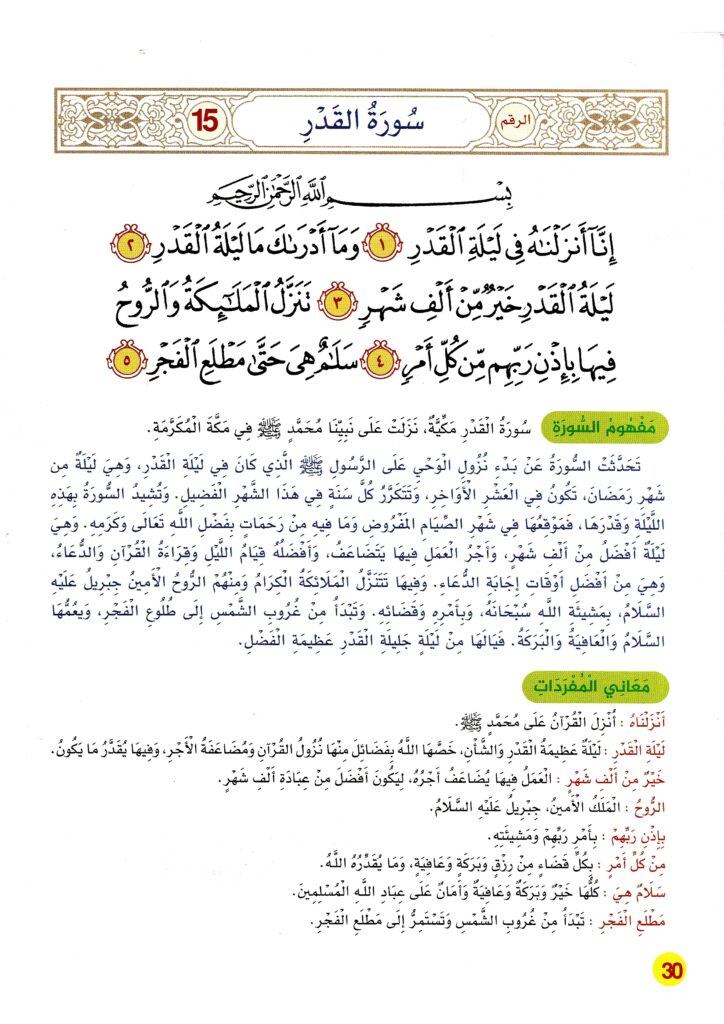 الرقم سُورَةُ القَدْرِ 15
بِسْمِ اللَّهِ الرَّحْمَٰنِ الرَّحِيمِ
إِنَّآ أَنزَلْنَٰهُ فِى لَيْلَةِ ٱلْقَدْرِ ١ وَمَآ أَدْرَىٰكَ مَا لَيْلَةُ ٱلْقَدْرِ ٢
لَيْلَةُ ٱلْقَدْرِ خَيْرٌ مِّنْ أَلْفِ شَهْرٍ ٣ تَنَزَّلُ ٱلْمَلَٰٓئِكَةُ وَٱلرُّوحُ
فِيهَا بِإِذْنِ رَبِّهِم مِّن كُلِّ أَمْرٍ ٤ سَلَٰمٌ هِىَ حَتَّىٰ مَطْلَعِ ٱلْفَجْرِ ٥
مَفْهُومُ السُّورَةِ سُورَةُ القَدْرِ مَكِّيَّةٌ، نَزَلَتْ عَلَى نَبِيِّنَا مُحَمَّدٍ ﷺ فِي مَكَّةَ المُكَرَّمَةِ.
تَحَدَّثَتْ السُّورَةُ عَنْ بَدْءِ نُزُولِ الوَحْيِ عَلَى الرَّسُولِ ﷺ الَّذِي كَانَ فِي لَيْلَةِ القَدْرِ، وَهِيَ لَيْلَةٌ مِن
شَهْرِ رَمَضَانَ، تَكُونُ في العَشْرِ الأَوَاخِرِ، وَتَتَكَرَّرُ كُلَّ سَنَةٍ في هَذَا الشَّهْرِ الفَضِيلِ. وَتُشِيدُ السُّورَةُ بِهَذِهِ
اللَّيْلَةِ وَقَدْرِهَا، فَمَوْقِعُهَا في شَهْرِ الصِّيَامِ المَفْرُوضِ وَمَا فِيهِ مِنْ رَحَمَاتٍ بِفَضْلِ اللهِ تَعَالَى وَكَرَمِهِ. وَهِيَ
لَيْلَةٌ أَفْضَلُ مِنْ أَلْفِ شَهْرٍ، وَأَجْرُ العَمَلِ فِيهَا يَتَضَاعَفُ، وَأَفْضَلُهُ قِيَامُ اللَّيْلِ وَقِرَاءَةُ القُرْآنِ وَالدُّعَاءُ،
وَهِيَ مِنْ أَفْضَلِ أَوْقَاتِ إِجَابَةِ الدُّعَاءِ. وَفِيهَا تَتَنَزَّلُ المَلَائِكَةُ الكِرَامُ وَمِنْهُمُ الرُّوحُ الأَمِينُ جِبْرِيلُ عَلَيْهِ
السَّلَامُ، بِمَشِيئَةِ اللهِ سُبْحَانَهُ، وَبِأَمْرِهِ وَقَضَائِهِ. وَتَبْدَأُ مِنْ غُرُوبِ الشَّمْسِ إِلَى طُلُوعِ الفَجْرِ، وَيَعُمُّهَا
السَّلَامُ وَالعَافِيَةُ وَالبَرَكَةُ. فَيَالَهَا مِنْ لَيْلَةٍ جَلِيلَةِ القَدْرِ عَظِيمَةِ الفَضْلِ.
مَعَانِي الْمُفْرَدَاتِ
أَنْزَلْنَاهُ : أُنْزِلَ القُرْآنُ عَلَى مُحَمَّدٍ ﷺ.
لَيْلَةِ القَدْرِ : لَيْلَةٌ عَظِيمَةُ القَدْرِ وَالشَّأْنِ، خَصَّهَا اللهُ بِفَضَائِلَ مِنْهَا نُزُولُ القُرْآنِ وَمُضَاعَفَةُ الأَجْرِ، وَفِيهَا يُقَدَّرُ مَا يَكُونُ.
خَيْرٌ مِنْ أَلْفِ شَهْرٍ : العَمَلُ فِيهَا يُضَاعَفُ أَجْرُهُ، لِيَكُونَ أَفْضَلَ مِنْ عِبَادَةِ أَلْفِ شَهْرٍ.
الرُّوحُ : المَلَكُ الأَمِينُ، جِبْرِيلُ عَلَيْهِ السَّلَامُ.
بِإِذْنِ رَبِّهِمْ : بِأَمْرِ رَبِّهِمْ وَمَشِيئَتِهِ.
مِنْ كُلِّ أَمْرٍ : بِكُلِّ قَضَاءٍ مِنْ رِزْقٍ وَبَرَكَةٍ وَعَافِيَةٍ، وَمَا يُقَدِّرُهُ اللهُ.
سَلَامٌ هِيَ : كُلُّهَا خَيْرٌ وَبَرَكَةٌ وَعَافِيَةٌ وَأَمَانٌ عَلَى عِبَادِ اللهِ المُسْلِمِينَ.
مَطْلَعِ الفَجْرِ : تَبْدَأُ مِنْ غُرُوبِ الشَّمْسِ وَتَسْتَمِرُّ إِلَى مَطْلَعِ الفَجْرِ.
30